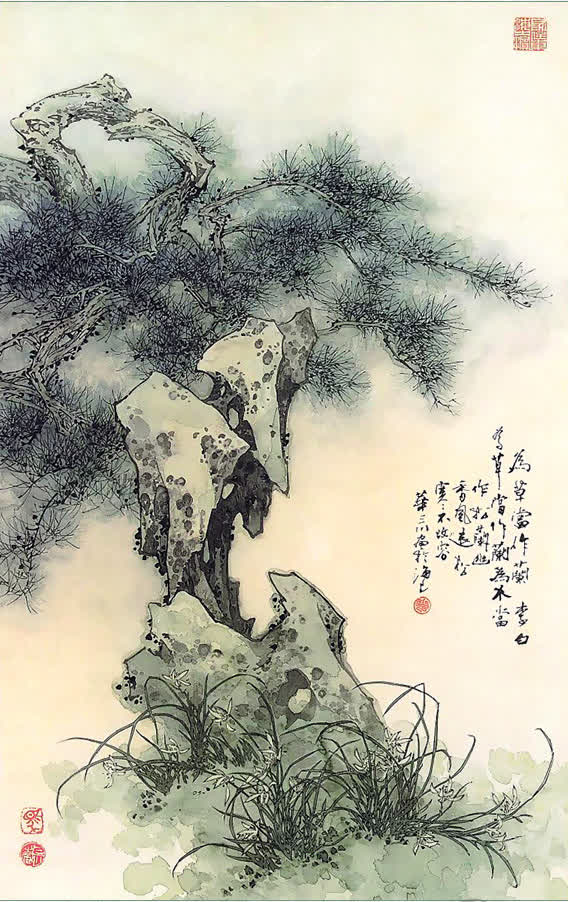 為草當作蘭 李白
為草當作蘭為木當
作松蘭幽
香風遠松
寒不改容
華三川畫於滬上